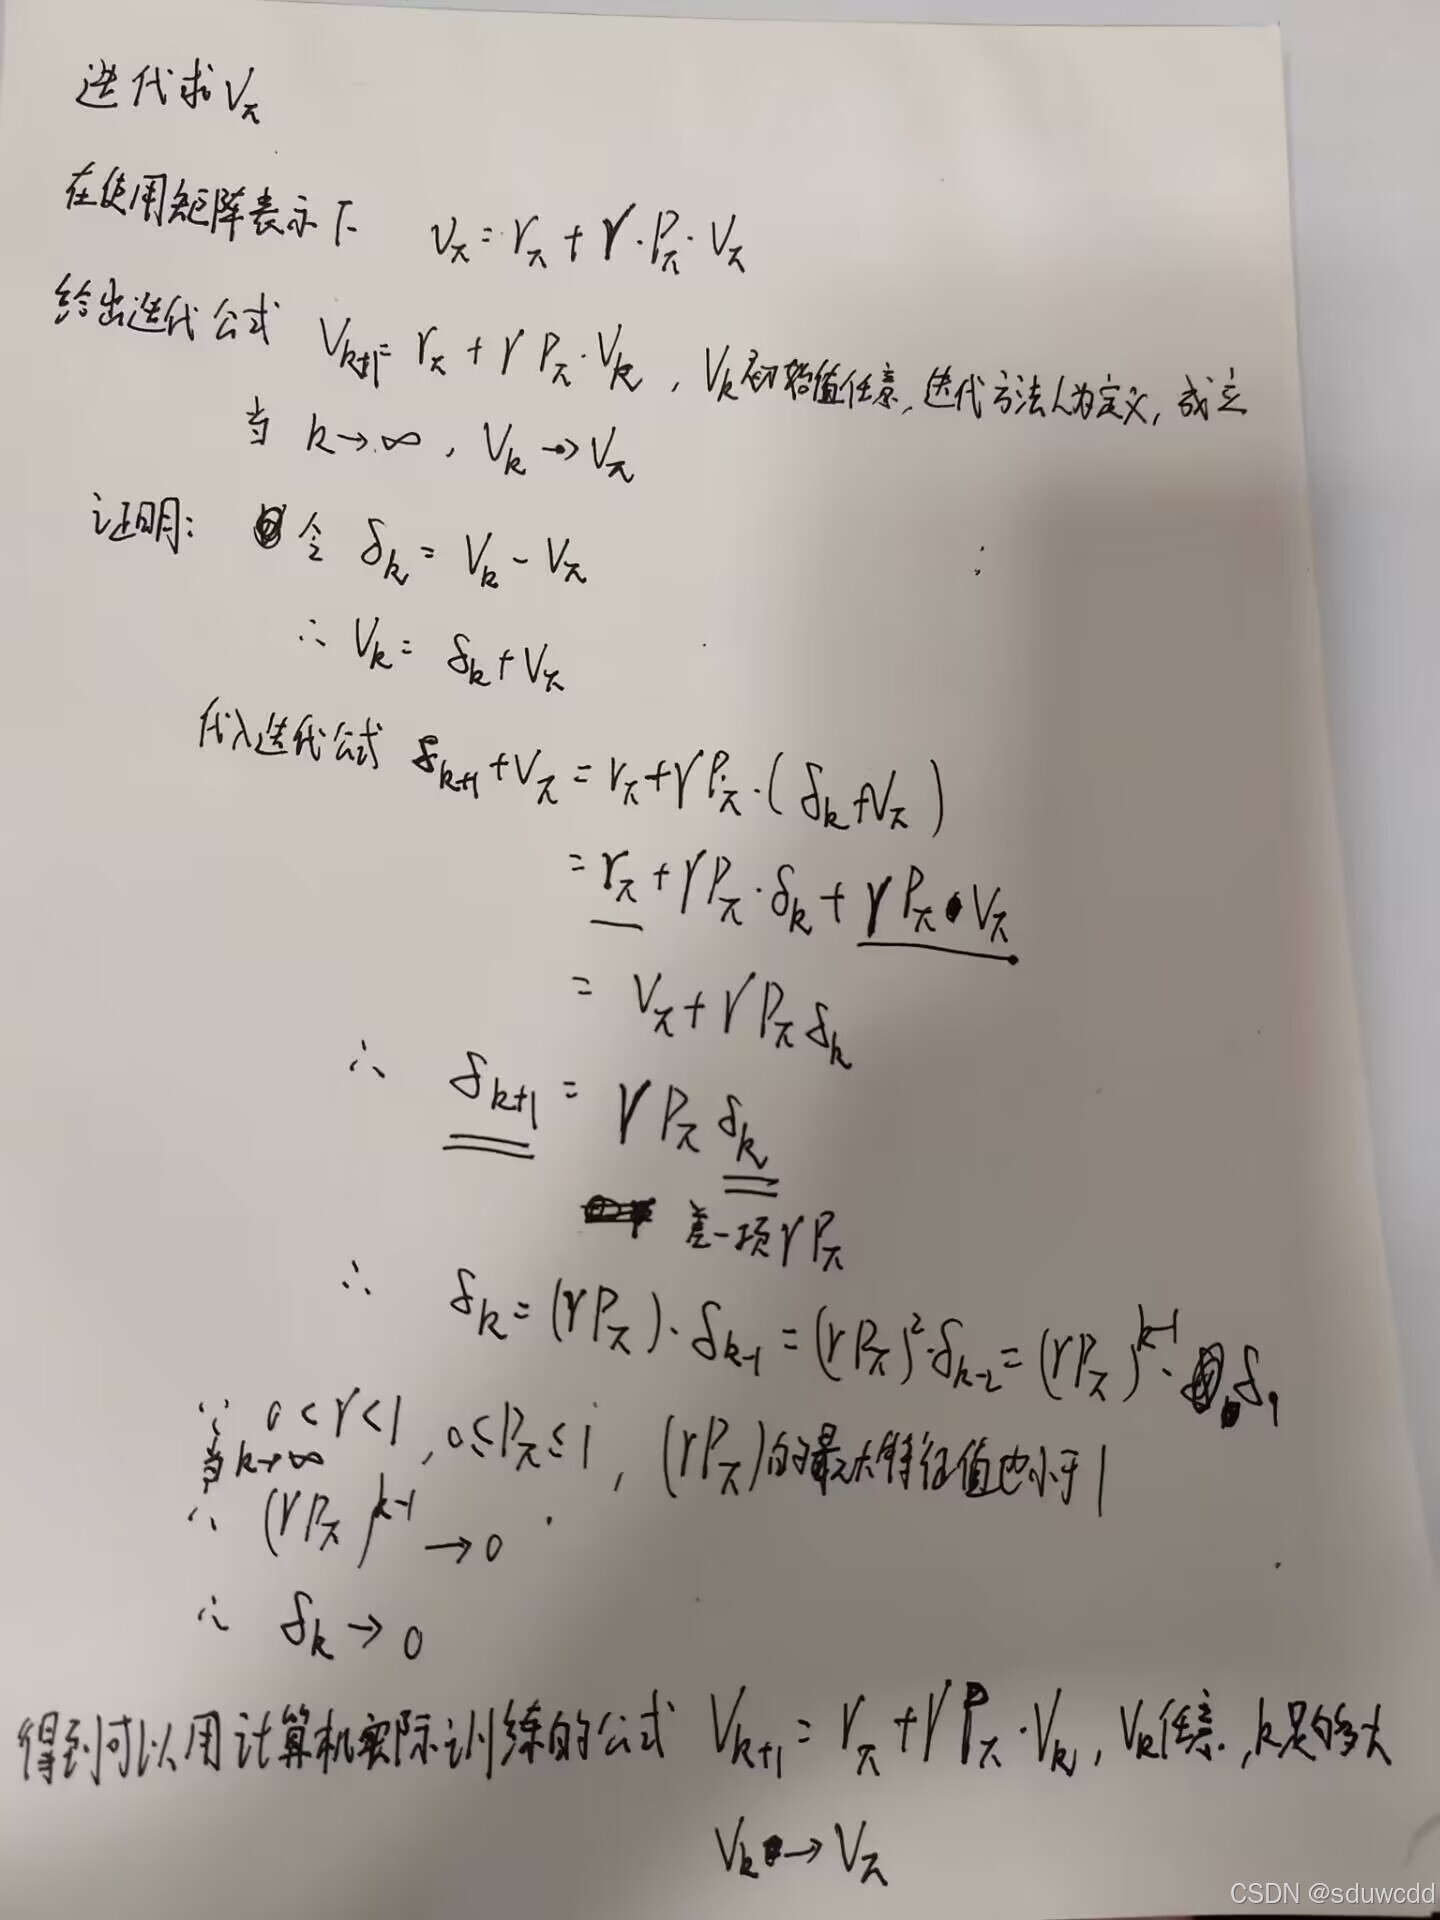 迭代求 Vπ
在使用矩阵表示下 Vπ = rπ + γ·Pπ·Vπ
给出迭代公式 Vk+1 = rπ + γPπ·Vk , Vk初始值任意, 迭代方法人为定义, 成立
当 k→∞ , Vk → Vπ
证明: 令 δk = Vk - Vπ
∴ Vk = δk + Vπ
代入迭代公式 δk+1 + Vπ = rπ + γPπ·(δk + Vπ)
= rπ + γPπ·δk + γPπ·Vπ
= Vπ + γPπδk
∴ δk+1 = γPπδk
差一项γPπ
∴ δk = (γPπ)·δk-1 = (γPπ)²·δk-2 = (γPπ)^k-1·δ1
∵ 0<γ<1 , 0≤Pπ≤1 , (γPπ)的最大特征值也小于1
当k→∞
∴ (γPπ)^k-1 → 0
∴ δk → 0
得到可以用计算机实际训练的公式 Vk+1 = rπ + γPπ·Vk , Vk任意, k足够大
Vk → Vπ
CSDN @sduwcdd